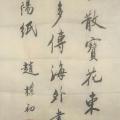 散寶花東
多傳海外書
陽紙 趙樸初